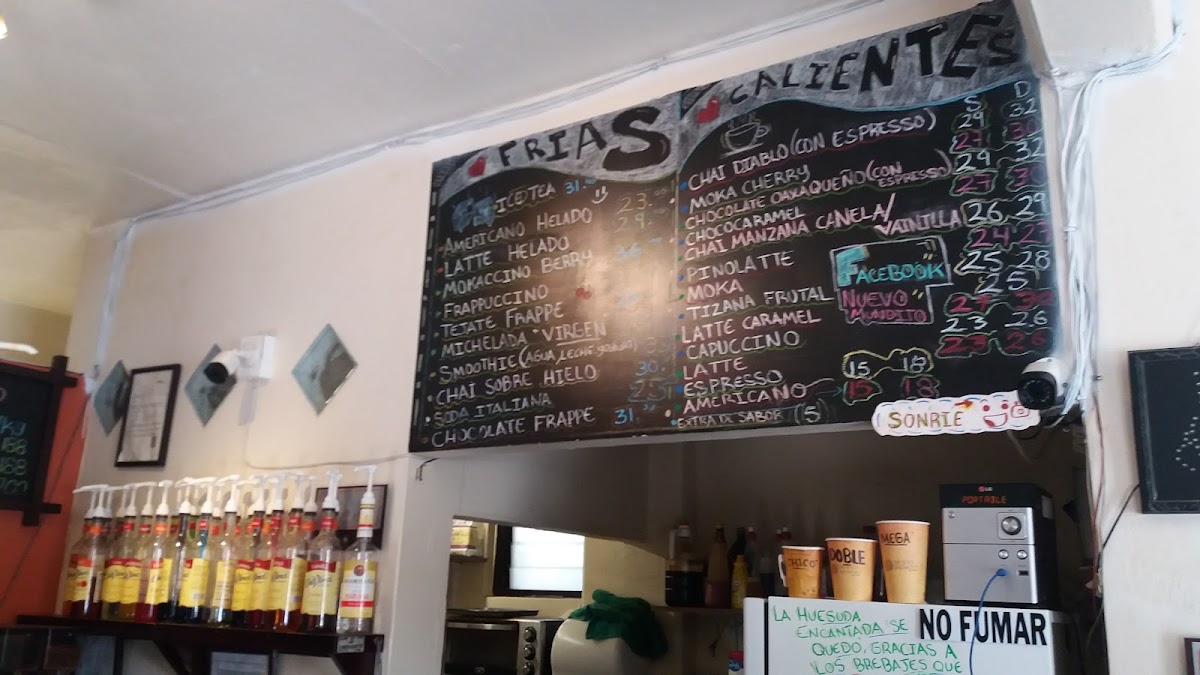 FRIAS
ICED TEA 31.
AMERICANO HELADO 23.
LATTE HELADO 29.
MOKACCINO BERRY
FRAPPUCCINO
TEJATE FRAPPE
MICHELADA "VIRGEN"
SMOOTHIE (AGUA, LECHE,
CHAI SOBRE HIELO 30.
SODA ITALIANA 25.
CHOCOLATE FRAPPE 31.
CALIENTES
S D
CHAI DIABLO (CON ESPRESSO) 29 32
MOKA CHERRY 27 30
CHOCOLATE OAXAQUEÑO (CON ESPRESSO) 29 32
CHOCOCARAMEL 27 30
CHAI MANZANA CANELA/VAINILLA 26 29
PINOLATTE 24 27
MOKA 25 28
TIZANA FRUTAL 25
LATTE CARAMEL 27 30
CAPUCCINO 23 26
LATTE 23 26
ESPRESSO 15 18
AMERICANO 15 18
EXTRA DE SABOR (5)
FACEBOOK
"NUEVO
MUNDITO"
SONRIE
LG
PORTABLE
CHICO
DOBLE
MEGA
LA HUESUDA
ENCANTADA SE
QUEDO, GRACIAS A
LOS BREBAJES QUE
NO FUMAR